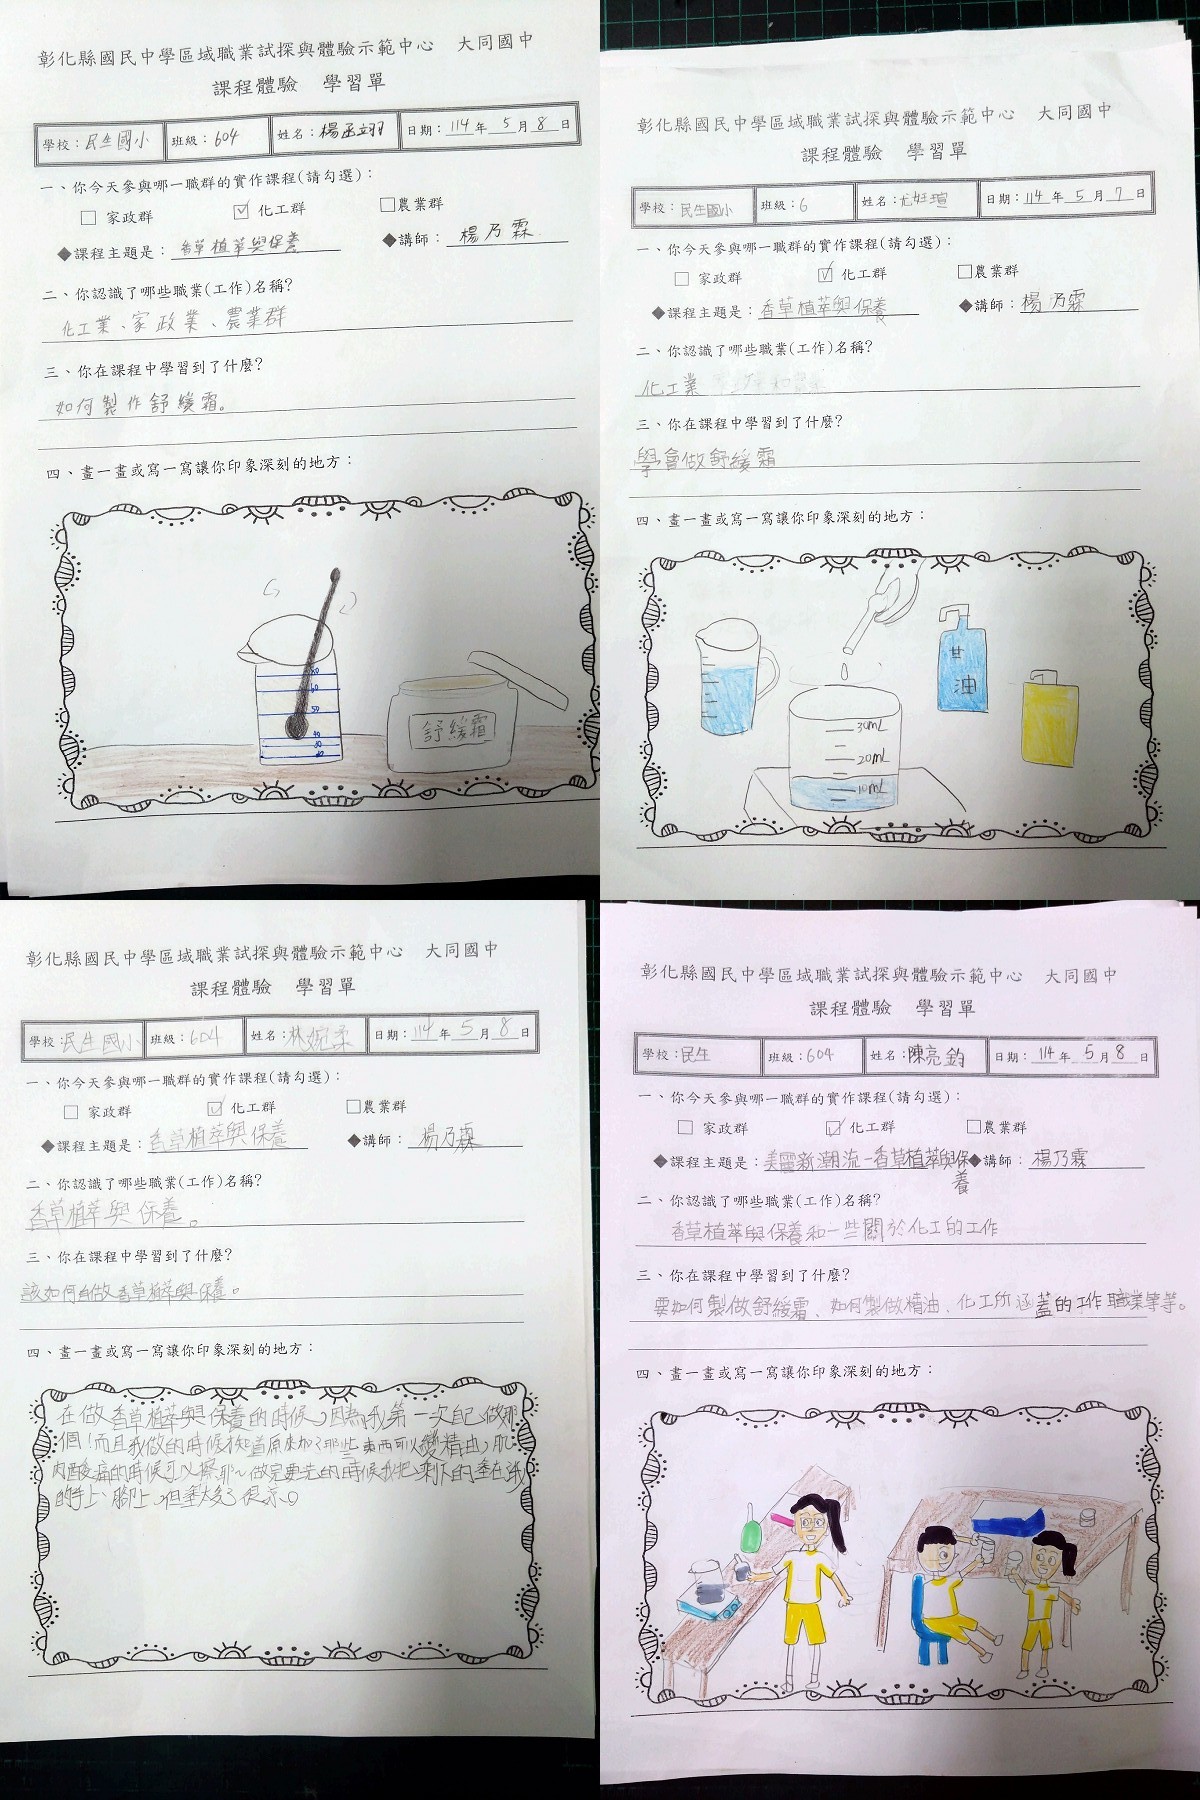 彰化縣國民中學區域職業試探與體驗示範中心 大同國中
課程體驗 學習單
學校：民生國小 班級：604 姓名：楊丞翊 日期：114年5月8日
一、你今天參與哪一職群的實作課程(請勾選)：
□ 家政群 ☑ 化工群 □農業群
◆課程主題是：香草植萃與保養 ◆講師：楊乃霖
二、你認識了哪些職業(工作)名稱?
化工業、家政業、農業群
三、你在課程中學習到了什麼?
如何製作舒緩霜。
四、畫一畫或寫一寫讓你印象深刻的地方：
60
50
40
30
舒緩霜
彰化縣國民中學區域職業試探與體驗示範中心 大同國中
課程體驗 學習單
學校：民生國小 班級：6 姓名：尤妊瑄 日期：114年5月7日
一、你今天參與哪一職群的實作課程(請勾選)：
□ 家政群 ☑ 化工群 □農業群
◆課程主題是：香草植萃與保養 ◆講師：楊乃霖
二、你認識了哪些職業(工作)名稱?
化工業
三、你在課程中學習到了什麼?
學會做舒緩霜
四、畫一畫或寫一寫讓你印象深刻的地方：
甘油
30mL
20mL
10mL
彰化縣國民中學區域職業試探與體驗示範中心 大同國中
課程體驗 學習單
學校：民生國小 班級：604 姓名：林婉柔 日期：114年5月8日
一、你今天參與哪一職群的實作課程(請勾選)：
□ 家政群 ☑ 化工群 □農業群
◆課程主題是：香草植萃與保養 ◆講師：楊乃霖
二、你認識了哪些職業(工作)名稱?
香草植萃與保養。
三、你在課程中學習到了什麼?
該如何自做香草植萃與保養。
四、畫一畫或寫一寫讓你印象深刻的地方：
在做香草植萃與保養的時候，因為我第一次自己做那
個！而且我做的時候才知道原來加了那些東西可以變精油，肌
肉酸痛的時候可以擦耶~做完要走的時候我把剩下的塗在我
的手上、腳上，但塗太多了很涼。
彰化縣國民中學區域職業試探與體驗示範中心 大同國中
課程體驗 學習單
學校：民生 班級：604 姓名：陳亮鈞 日期：114年5月8日
一、你今天參與哪一職群的實作課程(請勾選)：
□ 家政群 ☑ 化工群 □農業群
◆課程主題是：美麗新潮流-香草植萃與保養 ◆講師：楊乃霖
二、你認識了哪些職業(工作)名稱?
香草植萃與保養和一些關於化工的工作
三、你在課程中學習到了什麼?
要如何製做舒緩霜、如何製做精油、化工所涵蓋的工作職業等等。
四、畫一畫或寫一寫讓你印象深刻的地方：